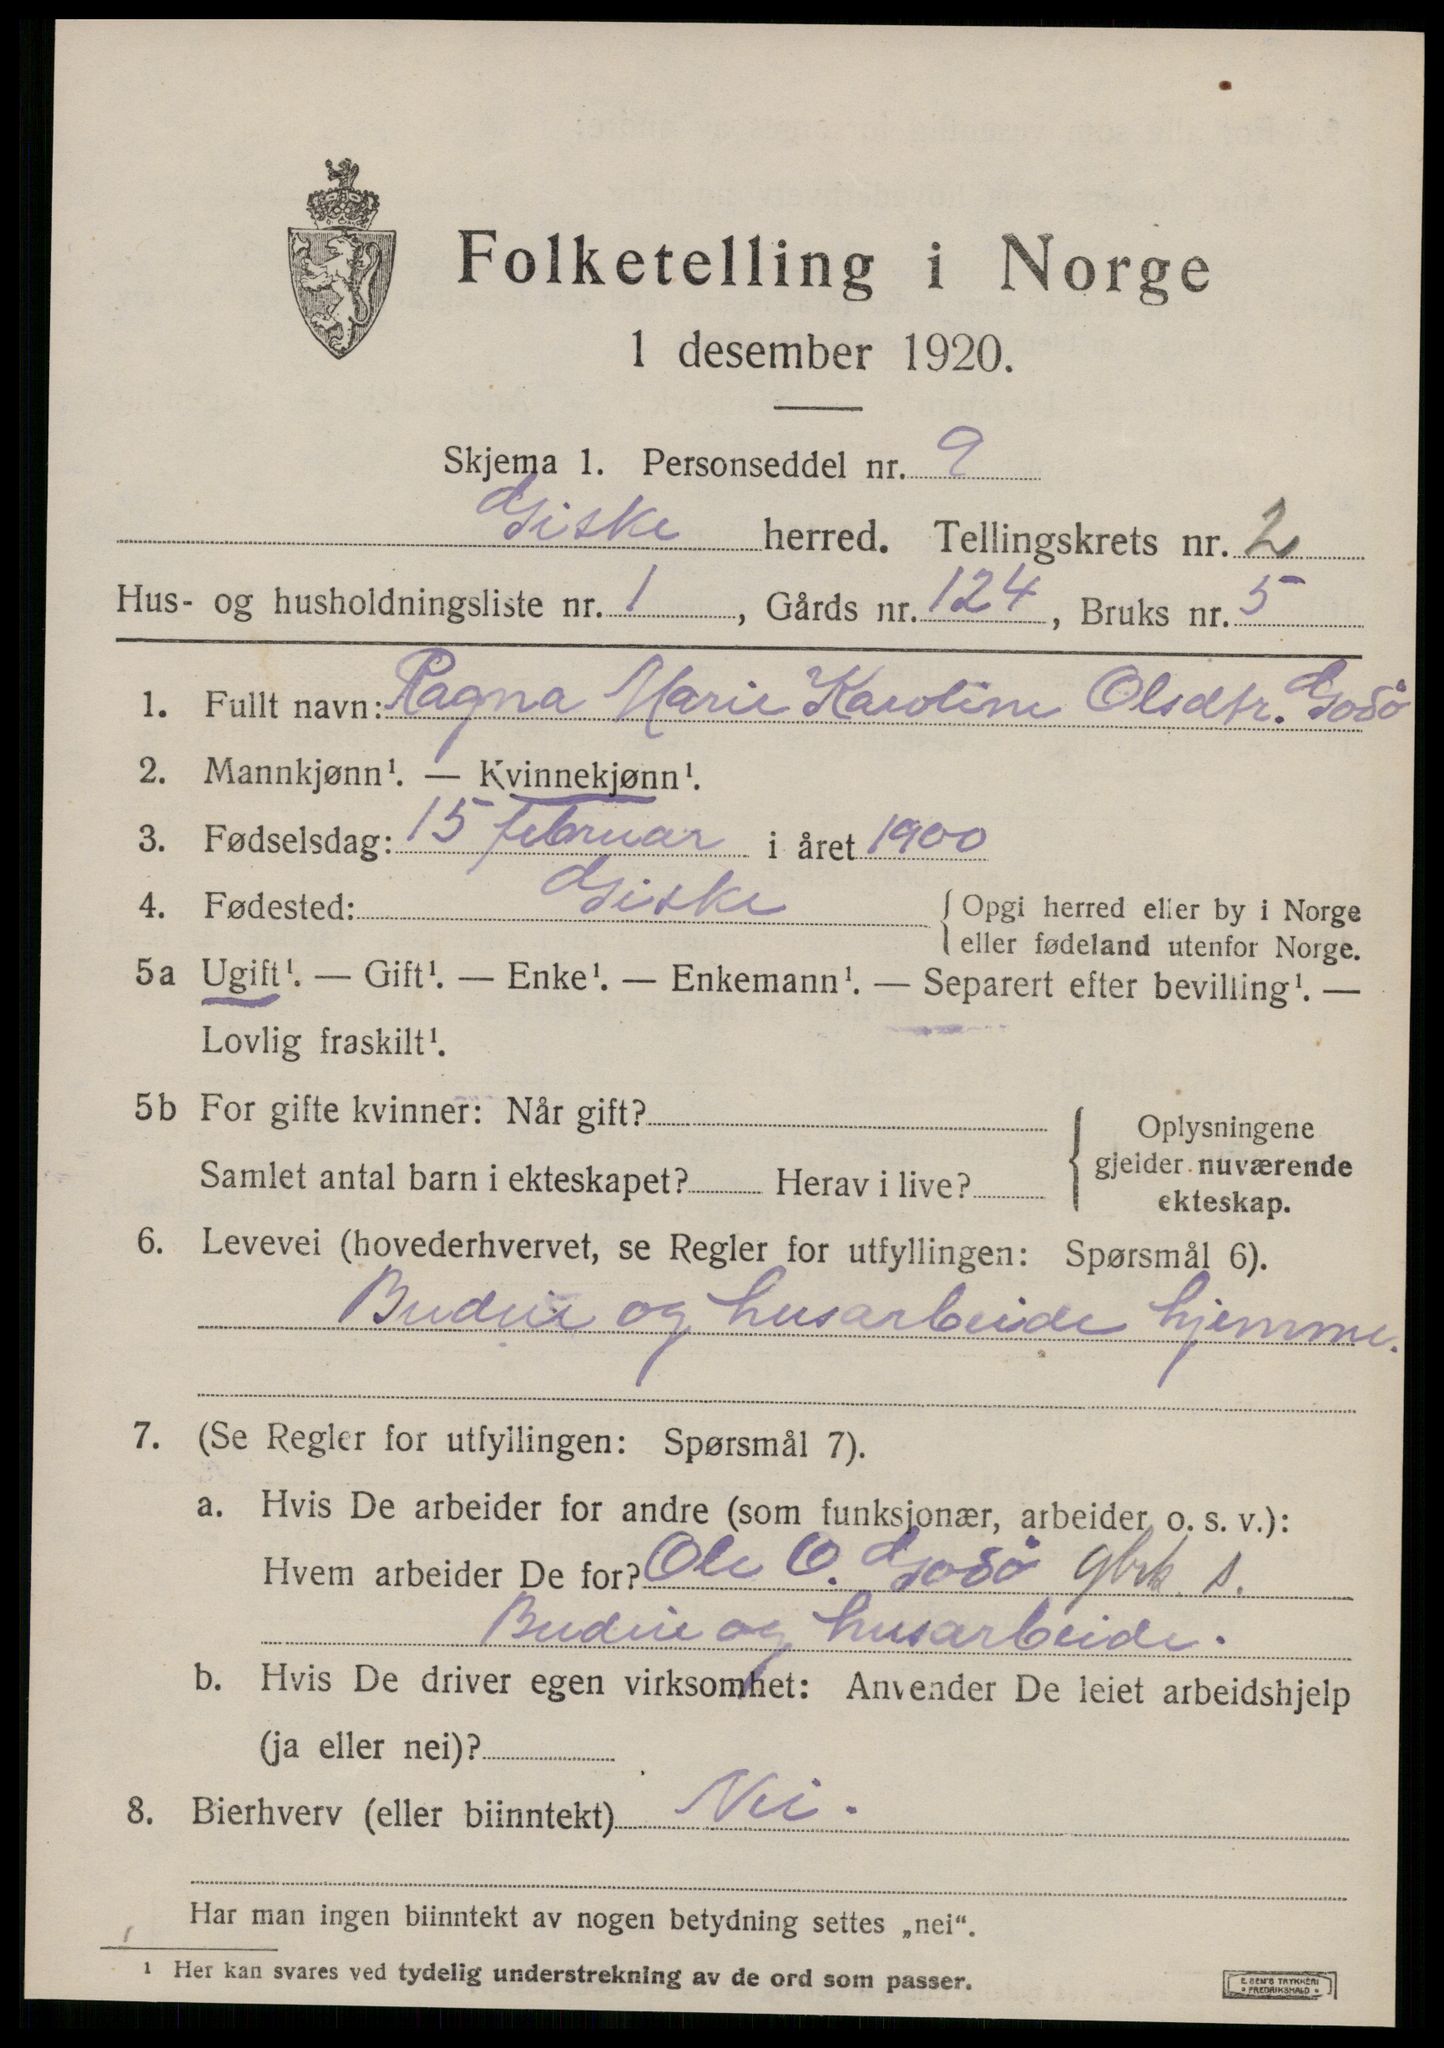 Folketelling i Norge
1 desember 1920.
Skjema 1. Personseddel nr. 9
Giske herred. Tellingskrets nr. 2
Hus- og husholdningsliste nr. 1, Gårds nr. 124, Bruks nr. 5
1. Fullt navn: Ragna Marie Karoline Olsdtr. Godö
2. Mannkjønn¹. — Kvinnekjønn¹.
3. Fødselsdag: 15 februar i året 1900
4. Fødested: Giske { Opgi herred eller by i Norge
eller fødeland utenfor Norge.
5a Ugift¹. — Gift¹. — Enke¹. — Enkemann¹. — Separert efter bevilling¹. —
Lovlig fraskilt¹.
5b For gifte kvinner: Når gift?
Samlet antal barn i ekteskapet? Herav i live?
{ Oplysningene
gjelder nuværende
ekteskap.
6. Levevei (hovederhvervet, se Regler for utfyllingen: Spørsmål 6).
Budeie og husarbeide hjemme.
7. (Se Regler for utfyllingen: Spørsmål 7).
a. Hvis De arbeider for andre (som funksjonær, arbeider o. s. v.):
Hvem arbeider De for? Ole O. Godö gbrk. s.
Budeie og husarbeide.
b. Hvis De driver egen virksomhet: Anvender De leiet arbeidshjelp
(ja eller nei)?
8. Bierhverv (eller biinntekt) Nei.
Har man ingen biinntekt av nogen betydning settes „nei“.
¹ Her kan svares ved tydelig understrekning av de ord som passer.
E. SEM'S TRYKKERI
• FREDRIKSHALD •